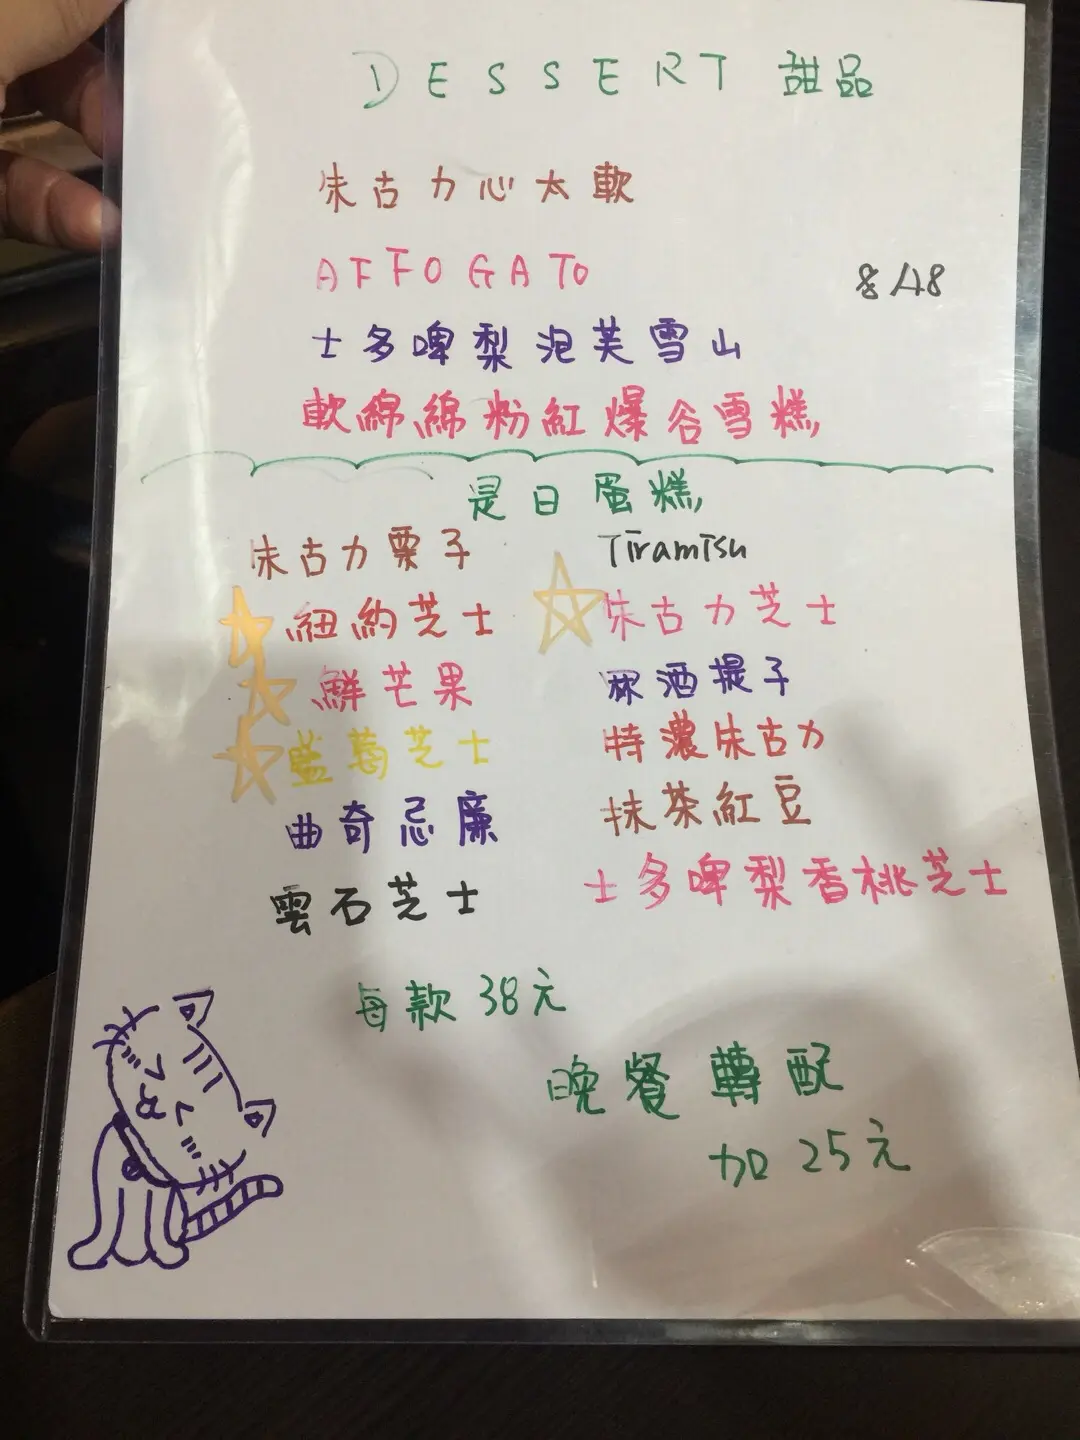 DESSERT 甜品
朱古力心太軟
AFFOGATO
$48
士多啤梨泡芙雪山
軟綿綿粉紅爆谷雪糕
是日蛋糕
朱古力栗子
Tiramisu
紐約芝士
朱古力芝士
鮮芒果
冧酒提子
藍莓芝士
特濃朱古力
曲奇忌廉
抹茶紅豆
雲石芝士
士多啤梨香桃芝士
每款 38元
晚餐轉配
加 25元